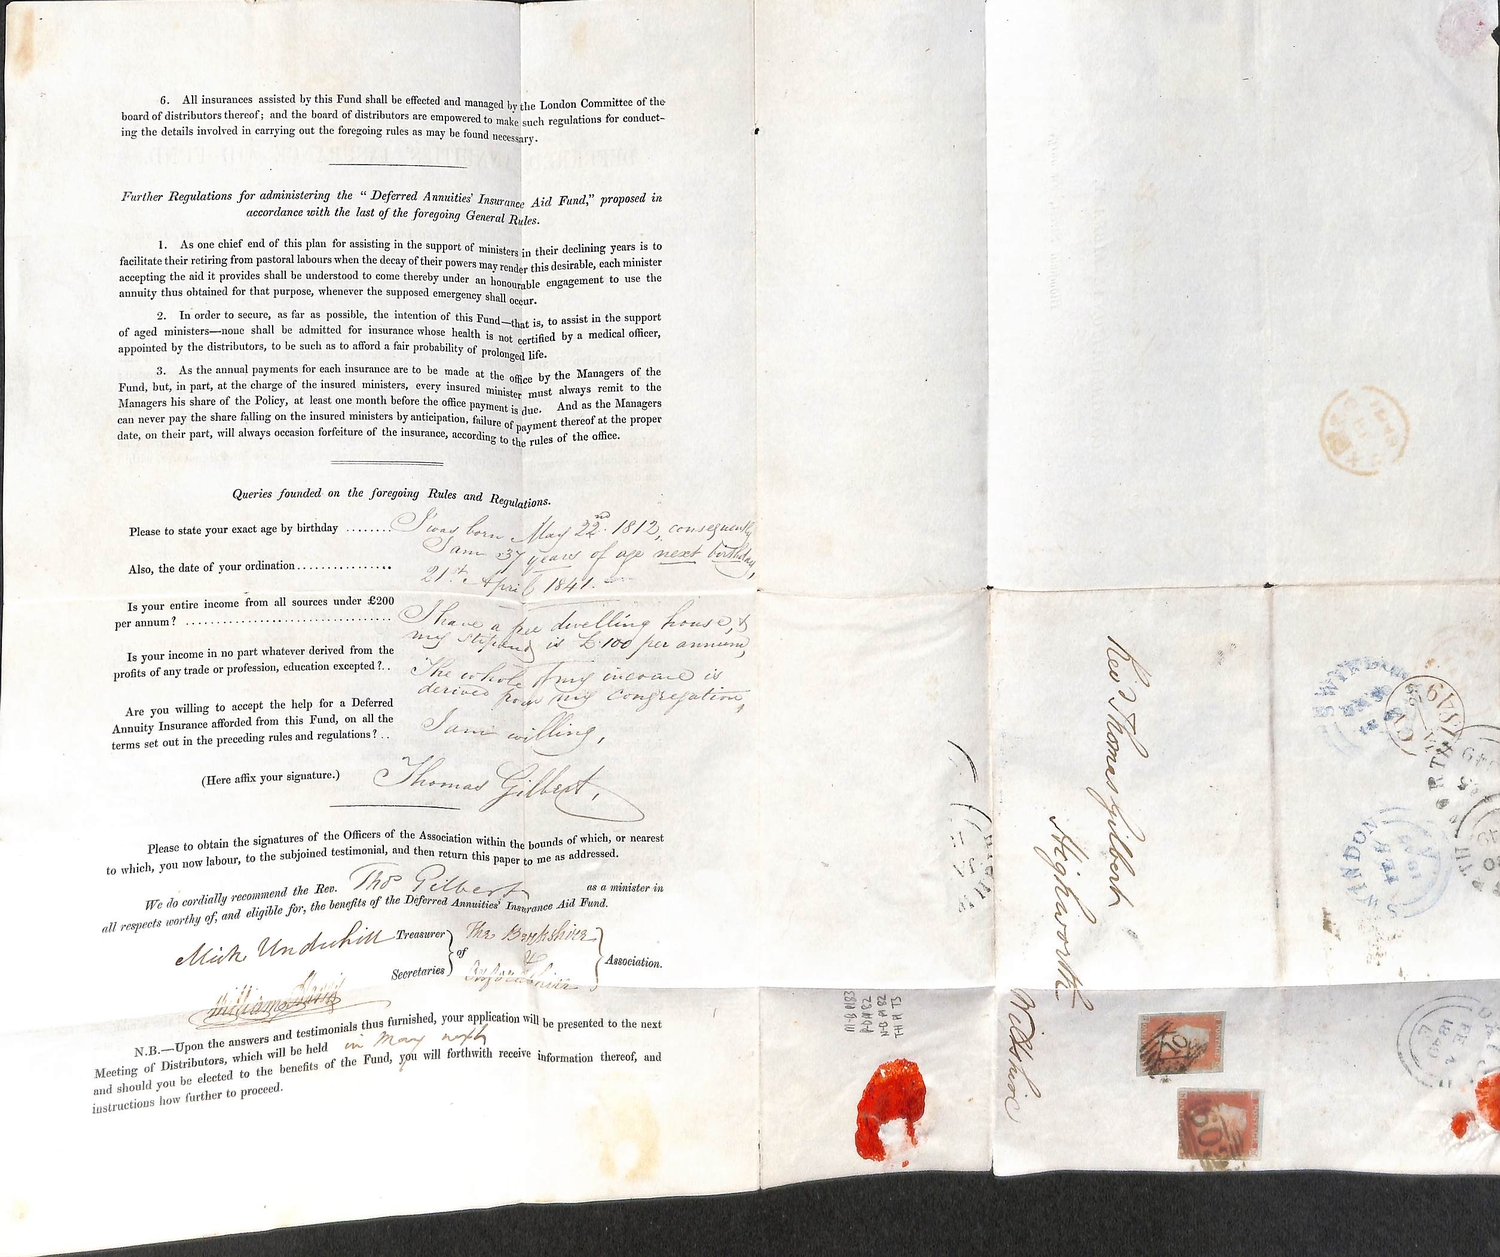 6. All insurances assisted by this Fund shall be effected and managed by the London Committee of the
board of distributors thereof; and the board of distributors are empowered to make such regulations for conduct-
ing the details involved in carrying out the foregoing rules as may be found necessary.
Further Regulations for administering the "Deferred Annuities' Insurance Aid Fund," proposed in
accordance with the last of the foregoing General Rules.
1. As one chief end of this plan for assisting in the support of ministers in their declining years is to
facilitate their retiring from pastoral labours when the decay of their powers may render this desirable, each minister
accepting the aid it provides shall be understood to come thereby under an honourable engagement to use the
annuity thus obtained for that purpose, whenever the supposed emergency shall occur.
2. In order to secure, as far as possible, the intention of this Fund—that is, to assist in the support
of aged ministers—none shall be admitted for insurance whose health is not certified by a medical officer,
appointed by the distributors, to be such as to afford a fair probability of prolonged life.
3. As the annual payments for each insurance are to be made at the office by the Managers of the
Fund, but, in part, at the charge of the insured ministers, every insured minister must always remit to the
Managers his share of the Policy, at least one month before the office payment is due. And as the Managers
can never pay the share falling on the insured ministers by anticipation, failure of payment thereof at the proper
date, on their part, will always occasion forfeiture of the insurance, according to the rules of the office.
Queries founded on the foregoing Rules and Regulations.
Please to state your exact age by birthday ........ I was born May 22nd. 1812, consequently
I am 37 years of age next birthday,
Also, the date of your ordination............... 21st April 1841.
Is your entire income from all sources under £200
per annum? ..................................
I have a free dwelling house, &
my stipend is £100 per annum,
Is your income in no part whatever derived from the
profits of any trade or profession, education excepted?..
The whole of my income is
derived from my congregation,
Are you willing to accept the help for a Deferred
Annuity Insurance afforded from this Fund, on all the
terms set out in the preceding rules and regulations?..
I am willing,
(Here affix your signature.) Thomas Gilbert,
Please to obtain the signatures of the Officers of the Association within the bounds of which, or nearest
to which, you now labour, to the subjoined testimonial, and then return this paper to me as addressed.
We do cordially recommend the Rev. Thos Gilbert as a minister in
all respects worthy of, and eligible for, the benefits of the Deferred Annuities' Insurance Aid Fund.
Mich Underhill Treasurer
Secretaries
of
The Berkshire
&
Oxfordshire
Association.
N.B.—Upon the answers and testimonials thus furnished, your application will be presented to the next
Meeting of Distributors, which will be held in May next
and should you be elected to the benefits of the Fund, you will forthwith receive information thereof, and
instructions how further to proceed.
Revd Thomas Gilbert
Highworth
Wiltshire
SWINDON
SWINDON
609